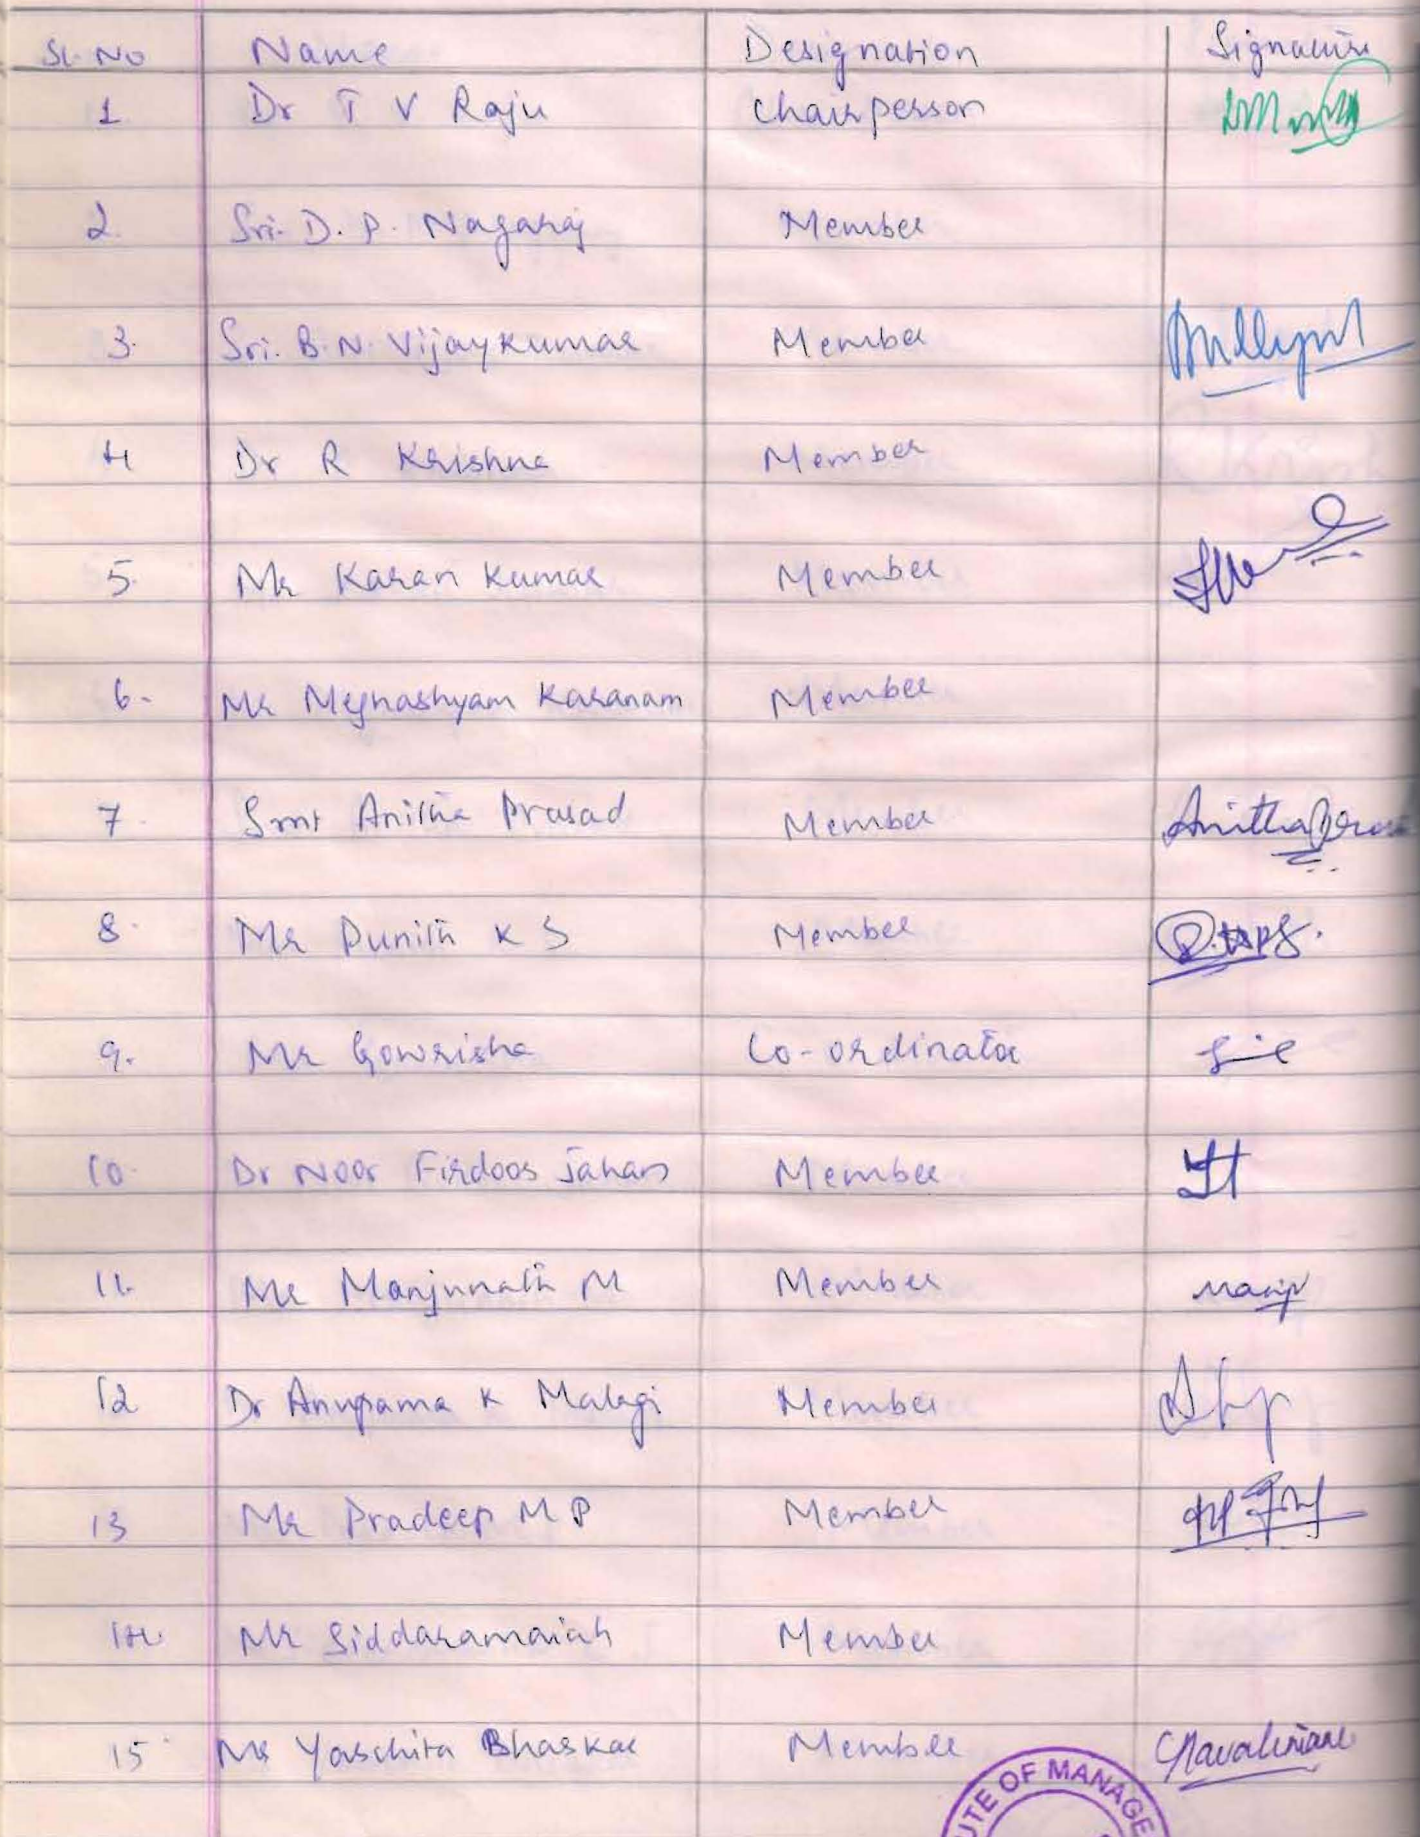 Sl. No Name Designation Signature
1 Dr T V Raju Chairperson
2. Sri. D. P. Nagaraj Member
3. Sri. B. N. Vijaykumar Member
4 Dr R Krishna Member
5. Mr Karan Kumar Member
6. Mr Meghashyam Karanam Member
7. Smt Anitha Prasad Member Anitha Pras
8. Mr Punith K S Member
9. Mr Gowrisha Co-ordinator
10. Dr Noor Firdoos Jahan Member
11. Mr Manjunnath M Member
12 Dr Anupama K Malagi Member
13 Mr Pradeep M P Member
14. Mr Siddaramaiah Member
15 Ms Yaschita Bhaskar Member
UTE OF MANAGE